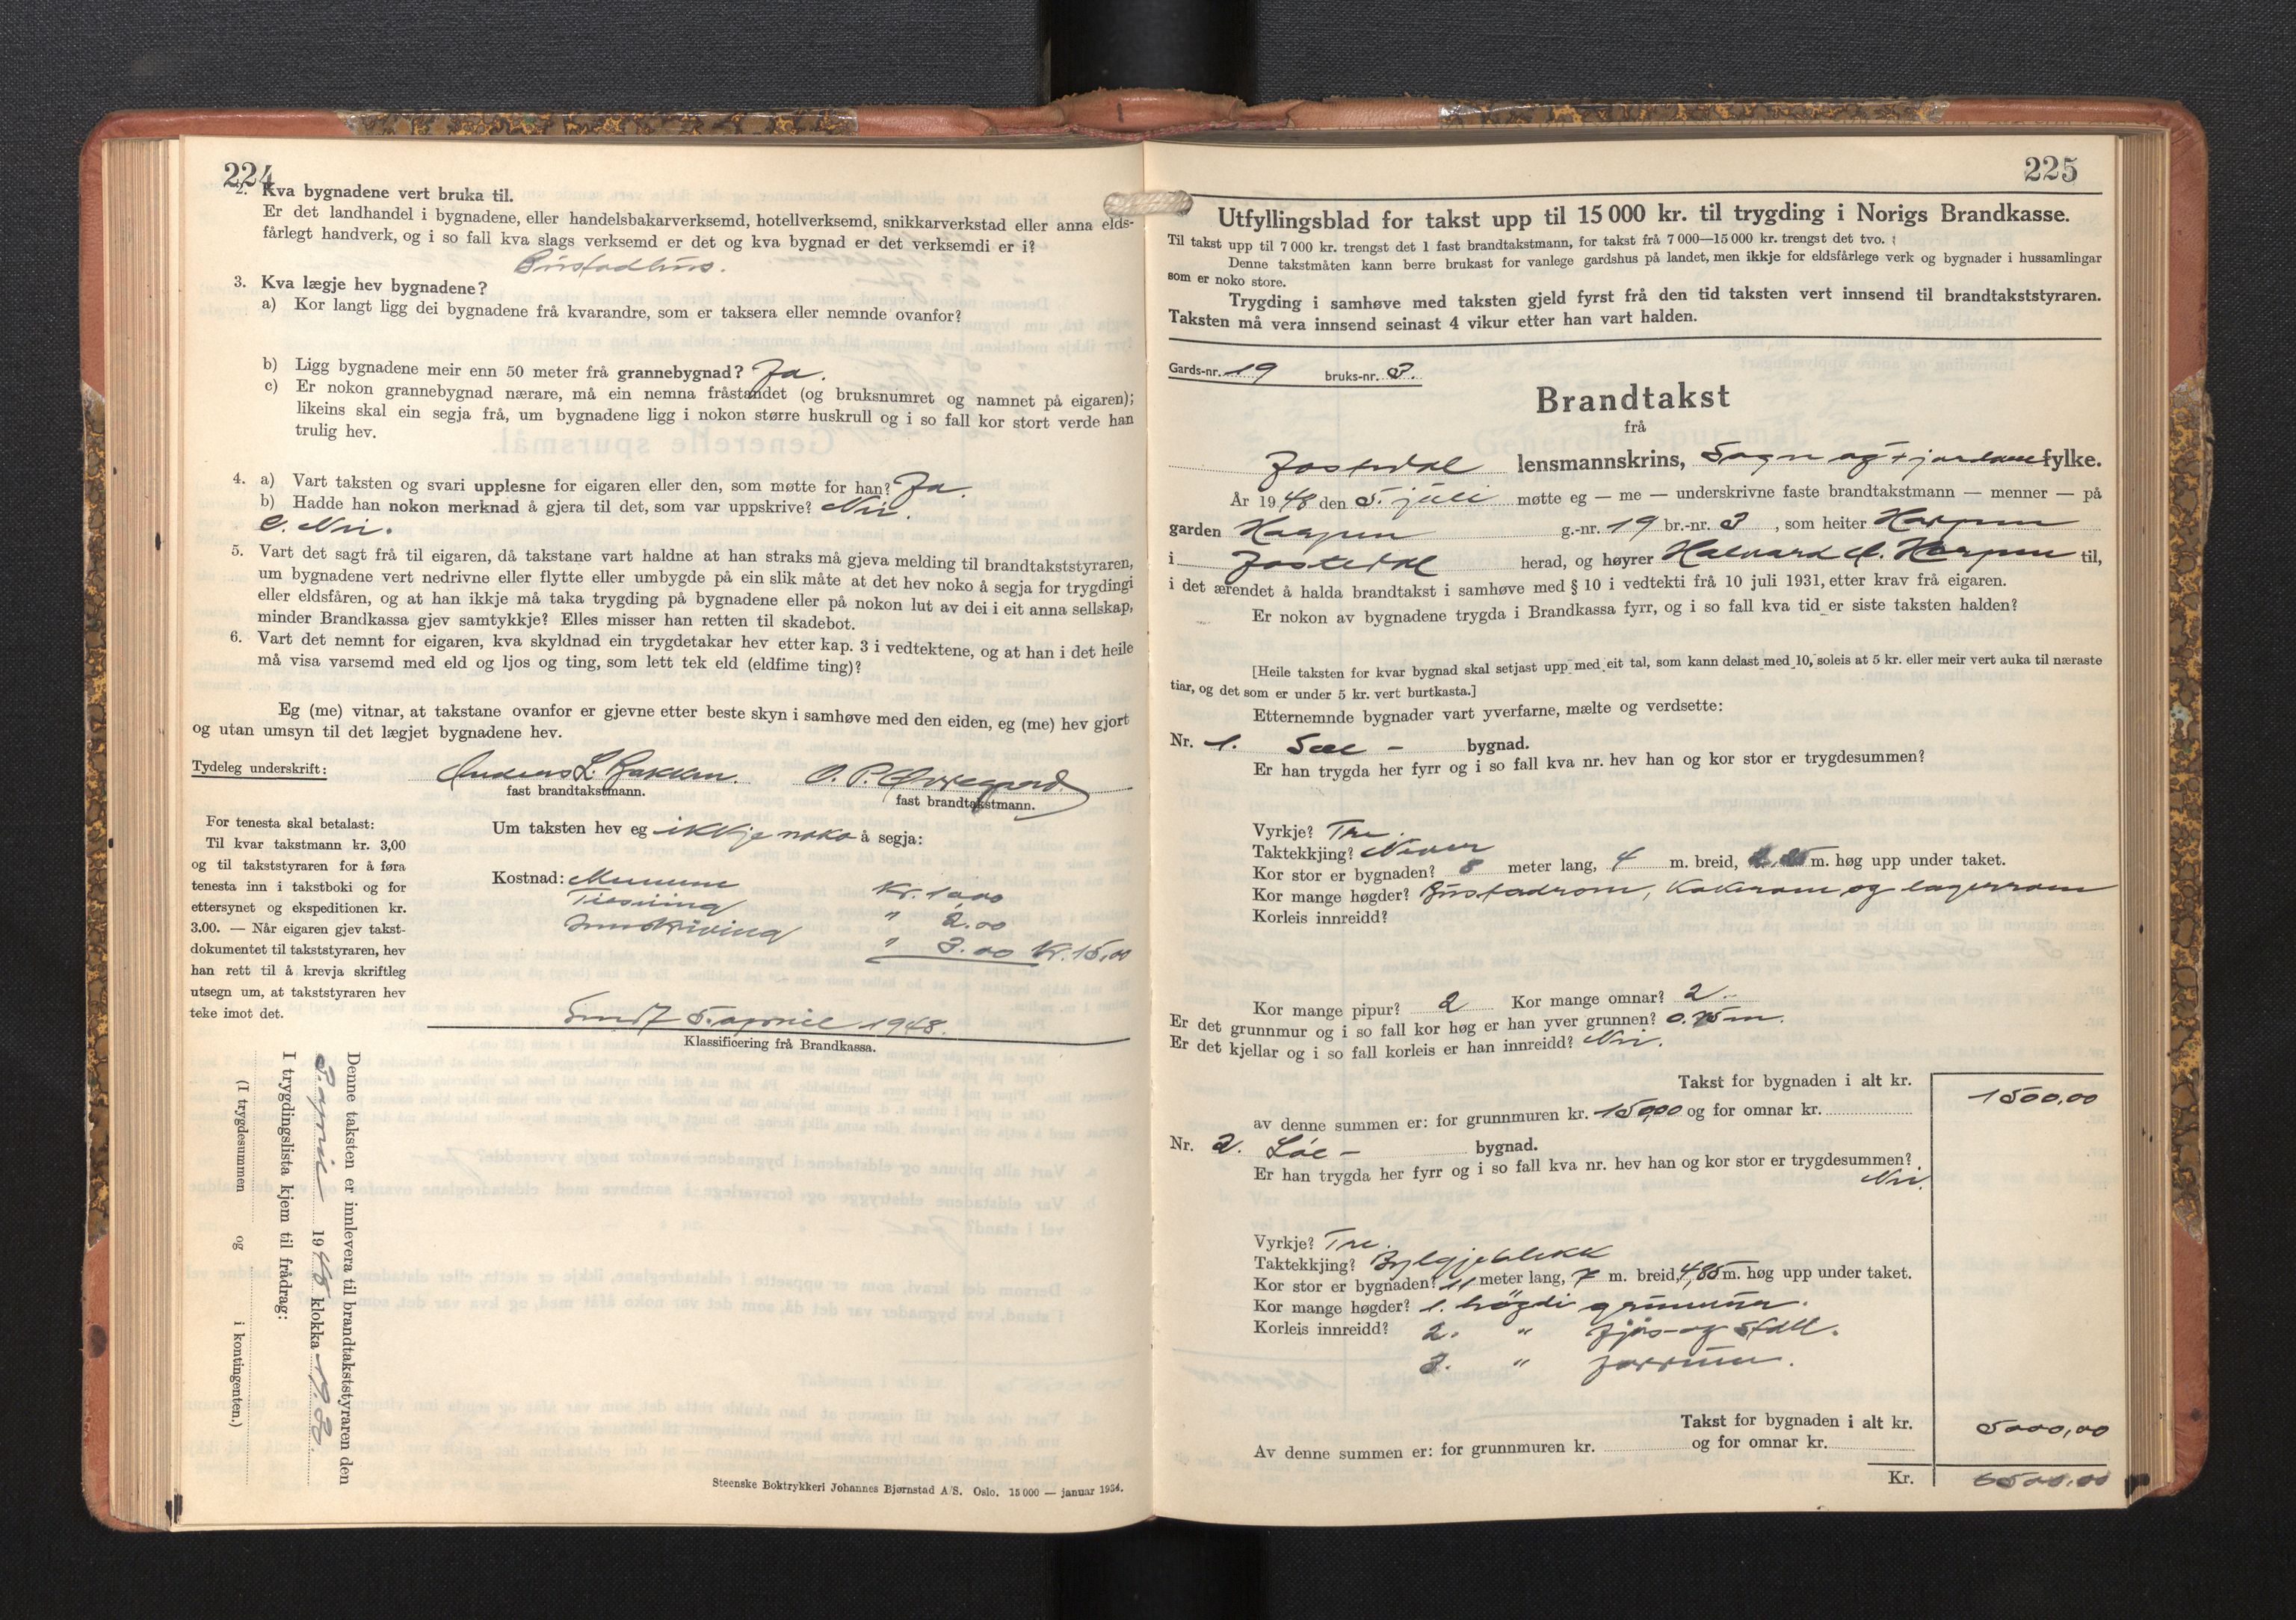 224
2. Kva bygnadene vert bruka til.
Er det landhandel i bygnadene, eller handelsbakarverksemd, hotellverksemd, snikkarverkstad eller anna elds-
fårlegt handverk, og i so fall kva slags verksemd er det og kva bygnad er det verksemdi er i?
Bustadhus.
3. Kva lægje hev bygnadene?
a) Kor langt ligg dei bygnadene frå kvarandre, som er taksera eller nemnde ovanfor?
b) Ligg bygnadene meir enn 50 meter frå grannebygnad? Ja.
c) Er nokon grannebygnad nærare, må ein nemna fråstandet (og bruksnumret og namnet på eigaren);
likeins skal ein segja frå, um bygnadene ligg i nokon større huskrull og i so fall kor stort verde han
trulig hev.
4. a) Vart taksten og svari upplesne for eigaren eller den, som møtte for han? Ja.
b) Hadde han nokon merknad å gjera til det, som var uppskrive? Nei.
C. Nei.
5. Vart det sagt frå til eigaren, då takstane vart haldne at han straks må gjeva melding til brandtakststyraren,
um bygnadene vert nedrivne eller flytte eller umbygde på ein slik måte at det hev noko å segja for trygdingi
eller eldsfåren, og at han ikkje må taka trygding på bygnadene eller på nokon lut av dei i eit anna sellskap,
minder Brandkassa gjev samtykkje? Elles misser han retten til skadebot.
6. Vart det nemnt for eigaren, kva skyldnad ein trygdetakar hev etter kap. 3 i vedtektene, og at han i det heile
må visa varsemd med eld og ljos og ting, som lett tek eld (eldfime ting)?
Eg (me) vitnar, at takstane ovanfor er gjevne etter beste skyn i samhøve med den eiden, eg (me) hev gjort
og utan umsyn til det lægjet bygnadene hev.
Tydeleg underskrift: Anders L. Bakken. O. P. Øvregard.
fast brandtakstmann. fast brandtakstmann.
For tenesta skal betalast:
Til kvar takstmann kr. 3,00
og til takststyraren for å føra
tenesta inn i takstboki og for
ettersynet og ekspeditionen kr.
3.00. — Når eigaren gjev takst-
dokumentet til takststyraren, hev
han rett til å krevja skriftleg
utsegn um, at takststyraren hev
teke imot det.
Um taksten hev eg ikkje noko å segja:
Kostnad: Mennene Kr. 10,00
Tilsining " 2.00
Innskriving " 3.00 Kr. 15,00
Sendt 5. april 1948.
Klassificering frå Brandkassa.
Denne taksten er innlevera til brandtakststyraren den
3. april 1948 klokka 19.30.
I trygdingslista kjem til frådrag:
(I trygdesummen og i kontingenten.)
Steenske Boktrykkeri Johannes Bjørnstad A/S. Oslo. 15 000 — januar 1934.
225
Utfyllingsblad for takst upp til 15 000 kr. til trygding i Norigs Brandkasse.
Til takst upp til 7 000 kr. trengst det 1 fast brandtakstmann, for takst frå 7 000—15 000 kr. trengst det tvo.
Denne takstmåten kann berre brukast for vanlege gardshus på landet, men ikkje for eldsfårlege verk og bygnader i hussamlingar
som er noko store.
Trygding i samhøve med taksten gjeld fyrst frå den tid taksten vert innsend til brandtakststyraren.
Taksten må vera innsend seinast 4 vikur etter han vart halden.
Gards-nr. 19 bruks-nr. 3.
Brandtakst
frå
Jostedal lensmannskrins, Sogn og Fjordane fylke.
År 1948 den 5. juli møtte eg — me — underskrivne faste brandtakstmann — menner — på
garden Haugen g.-nr. 19 br.-nr. 3, som heiter Haugen
i Jostedal herad, og høyrer Halvard A. Haugen til,
i det ærendet å halda brandtakst i samhøve med § 10 i vedtekti frå 10 juli 1931, etter krav frå eigaren.
Er nokon av bygnadene trygda i Brandkassa fyrr, og i so fall kva tid er siste taksten halden?
[Heile taksten for kvar bygnad skal setjast upp med eit tal, som kann delast med 10, soleis at 5 kr. eller meir vert auka til næraste
tiar, og det som er under 5 kr. vert burtkasta.]
Etternemnde bygnader vart yverfarne, mælte og verdsette:
Nr. 1. Sæl - bygnad.
Er han trygda her fyrr og i so fall kva nr. hev han og kor stor er trygdesummen?
Vyrkje? Tre.
Taktekkjing? Never
Kor stor er bygnaden? 8 meter lang, 4 m. breid, m. høg upp under taket.
Kor mange høgder? Bustadrom, kokerom og lagerrom
Korleis innreidd?
Kor mange pipur? 2 Kor mange omnar? 2
Er det grunnmur og i so fall kor høg er han yver grunnen? 0.75 m.
Er det kjellar og i so fall korleis er han innreidd? Nei.
Takst for bygnaden i alt kr. 1500,00
av denne summen er: for grunnmuren kr. 150,00 og for omnar kr.
Nr. 2. Løe - bygnad.
Er han trygda her fyrr og i so fall kva nr. hev han og kor stor er trygdesummen?
Nei.
Vyrkje? Tre.
Taktekkjing? Bylgjeblekk
Kor stor er bygnaden? 11 meter lang, 7 m. breid, 4,85 m. høg upp under taket.
Kor mange høgder? 1. høgdi grunnmur.
Korleis innreidd? 2. " fjøs- og stall.
3. " forrum.
Takst for bygnaden i alt kr. 5000,00
Av denne summen er: for grunnmuren kr. og for omnar kr.
Kr. 6500,00